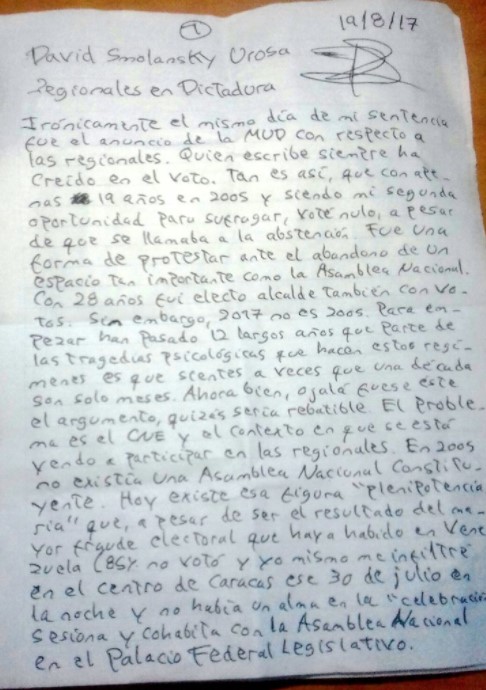 1
19/8/17
David Smolansky Urosa
Regionales en Dictadura
Irónicamente el mismo día de mi sentencia
fue el anuncio de la MUD con respecto a
las regionales. Quien escribe siempre ha
creído en el voto. Tan es así, que con ape-
nas 19 años en 2005 y siendo mi segunda
oportunidad para sufragar, voté nulo, a pesar
de que se llamaba a la abstención. Fue una
forma de protestar ante el abandono de un
espacio tan importante como la Asamblea Nacional.
Con 28 años fui electo alcalde también con vo-
tos. Sin embargo, 2017 no es 2005. Para em-
pezar han pasado 12 largos años que parte de
las tragedias psicológicas que hacen estos regí-
menes es que sientes a veces que una década
son solo meses. Ahora bien, ojalá fuese este
el argumento, quizás sería rebatible. El proble-
ma es el CNE y el contexto en que se está
yendo a participar en las regionales. En 2005
no existía una Asamblea Nacional Constitu-
yente. Hoy existe esa figura "plenipotencia
ria" que, a pesar de ser el resultado del ma-
yor fraude electoral que haya habido en Vene
zuela (85% no votó y yo mismo me infiltré
en el centro de Caracas ese 30 de julio en
la noche y no había un alma en la "celebración
sesiona y cohabita con la Asamblea Nacional
en el Palacio Federal Legislativo.